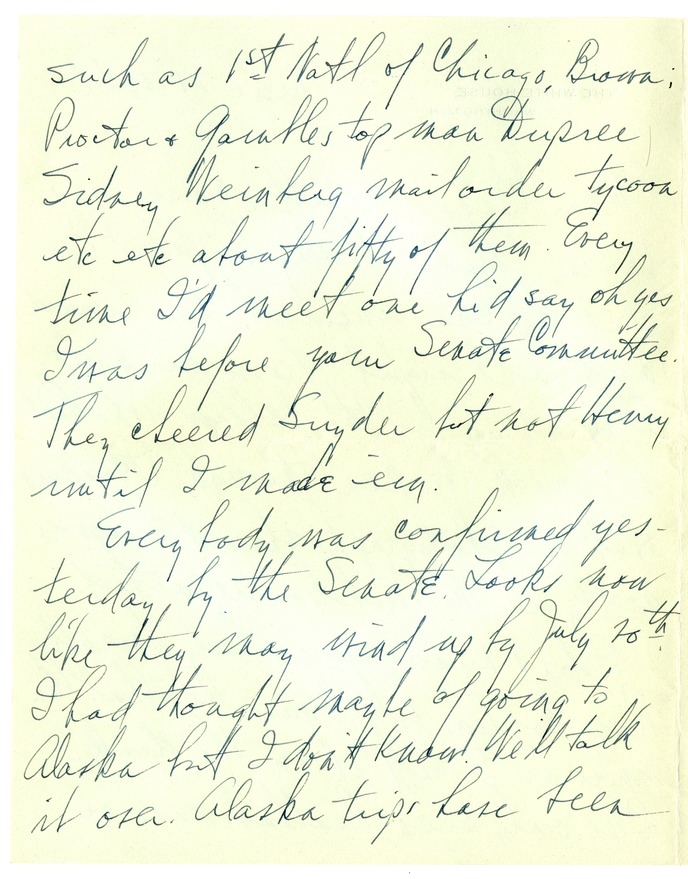 such as 1st Natl of Chicago, Brown;
Proctor & Gambles top man Dupree
Sidney Weinberg mail order tycoon
etc etc about fifty of them. Every
time I'd meet one he'd say oh yes
I was before your Senate Committee.
They cheered Snyder but not Henry
until I made 'em.
Every body was confirmed yes-
terday by the Senate. Looks now
like they may wind up by July 20th.
I had thought maybe of going to
Alaska but I don't know. We'll talk
it over. Alaska trips have been